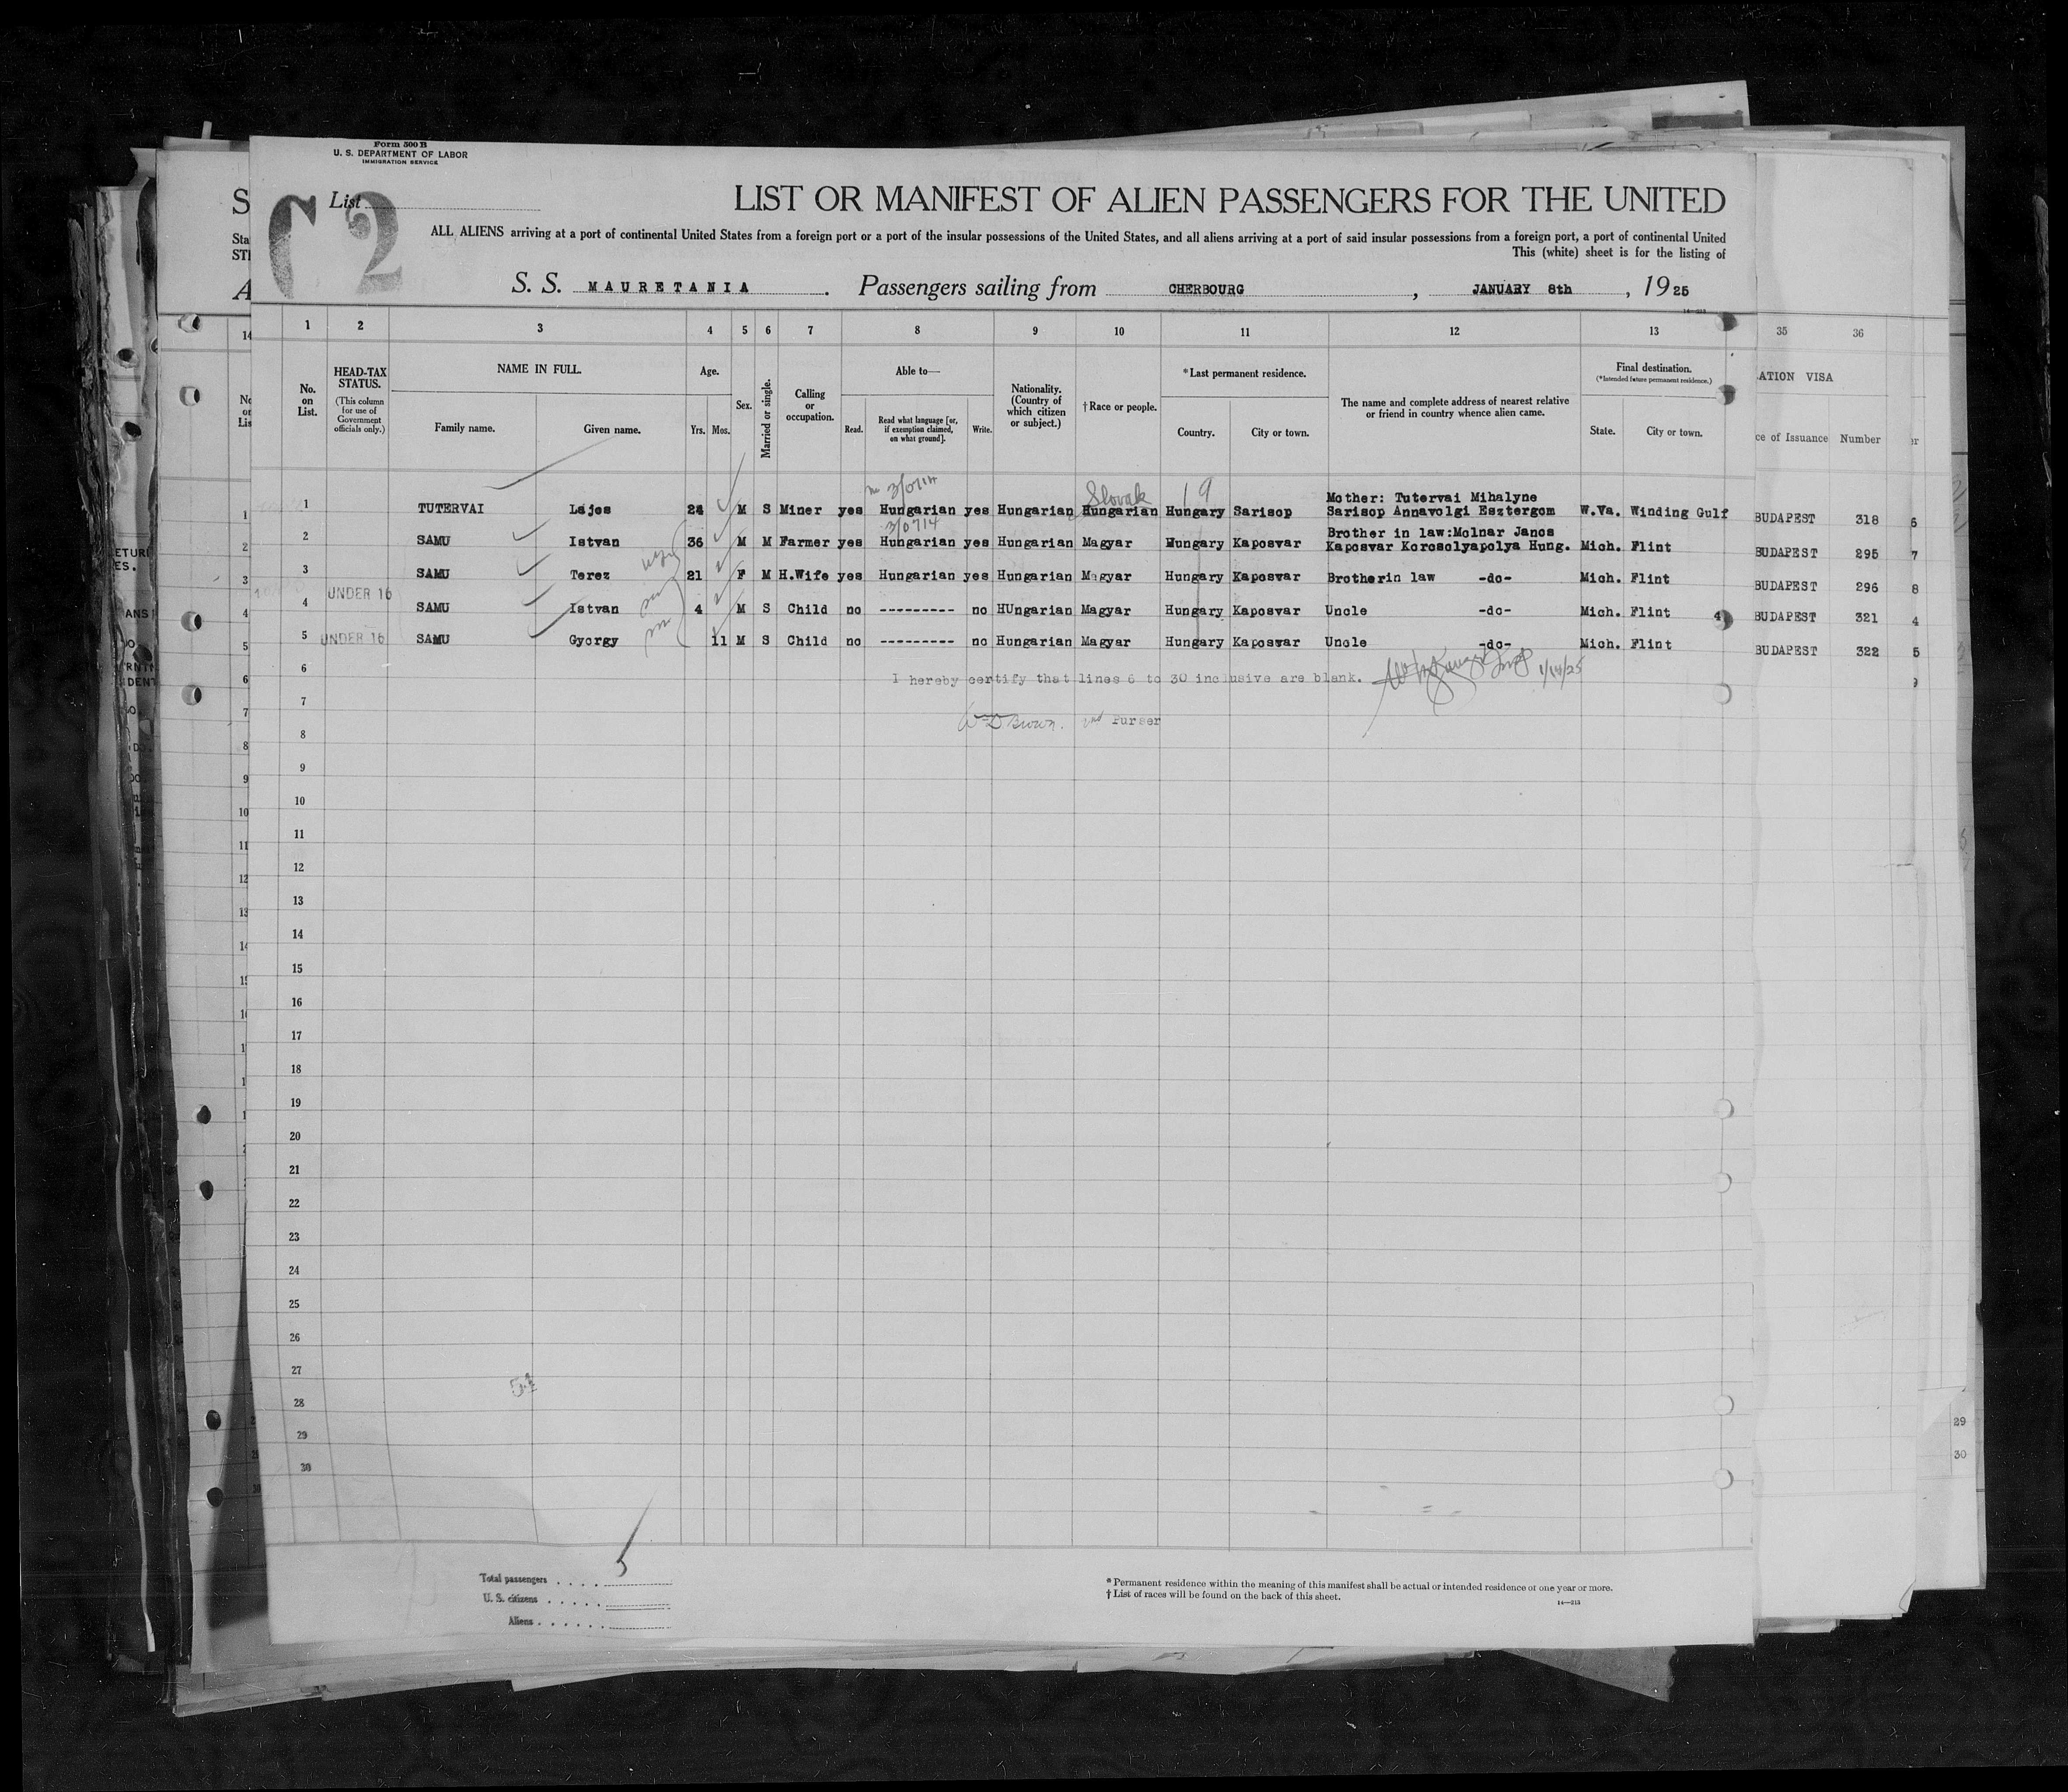 Form 500 B
U. S. DEPARTMENT OF LABOR
IMMIGRATION SERVICE
C 2
List
LIST OR MANIFEST OF ALIEN PASSENGERS FOR THE UNITED
ALL ALIENS arriving at a port of continental United States from a foreign port or a port of the insular possessions of the United States, and all aliens arriving at a port of said insular possessions from a foreign port, a port of continental United
This (white) sheet is for the listing of
S. S. MAURETANIA . Passengers sailing from CHERBOURG , JANUARY 8th , 1925
14—213
1 2 3 4 5 6 7 8 9 10 11 12 13 35 36
No. on List.
HEAD-TAX STATUS.
(This column for use of Government officials only.)
NAME IN FULL.
Family name. Given name.
Age.
Yrs. Mos.
Sex.
Married or single.
Calling or occupation.
Able to—
Read. Read what language [or, if exemption claimed, on what ground]. Write.
Nationality. (Country of which citizen or subject.)
†Race or people.
*Last permanent residence.
Country. City or town.
The name and complete address of nearest relative or friend in country whence alien came.
Final destination.
(*Intended future permanent residence.)
State. City or town.
ATION VISA
ce of Issuance Number
3/0714
Slovak
19
Mother: Tutervai Mihalyne
1 TUTERVAI Lajos 24 M S Miner yes Hungarian yes Hungarian Hungarian Hungary Sarisop Sarisop Annavolgi Esztergom W.Va. Winding Gulf BUDAPEST 318
3/0714
Brother in law:Molnar Janos
2 SAMU Istvan 36 M M Farmer yes Hungarian yes Hungarian Magyar Hungary Kaposvar Kaposvar Korosolyapolya Hung. Mich. Flint BUDAPEST 295
3 SAMU Terez 21 F M H.Wife yes Hungarian yes Hungarian Magyar Hungary Kaposvar Brotherin law -do- Mich. Flint BUDAPEST 296
4 UNDER 16 SAMU Istvan 4 M S Child no --------- no HUngarian Magyar Hungary Kaposvar Uncle -do- Mich. Flint BUDAPEST 321
5 UNDER 16 SAMU Gyorgy 11 M S Child no --------- no Hungarian Magyar Hungary Kaposvar Uncle -do- Mich. Flint BUDAPEST 322
6
I hereby certify that lines 6 to 30 inclusive are blank. 1/14/25
7
W D Brown. Purser
8
9
10
11
12
13
14
15
16
17
18
19
20
21
22
23
24
25
26
27
54
28
29
30
Total passengers . . . . 5
U. S. citizens . . . . .
Aliens . . . . . .
* Permanent residence within the meaning of this manifest shall be actual or intended residence of one year or more.
† List of races will be found on the back of this sheet.
14—213